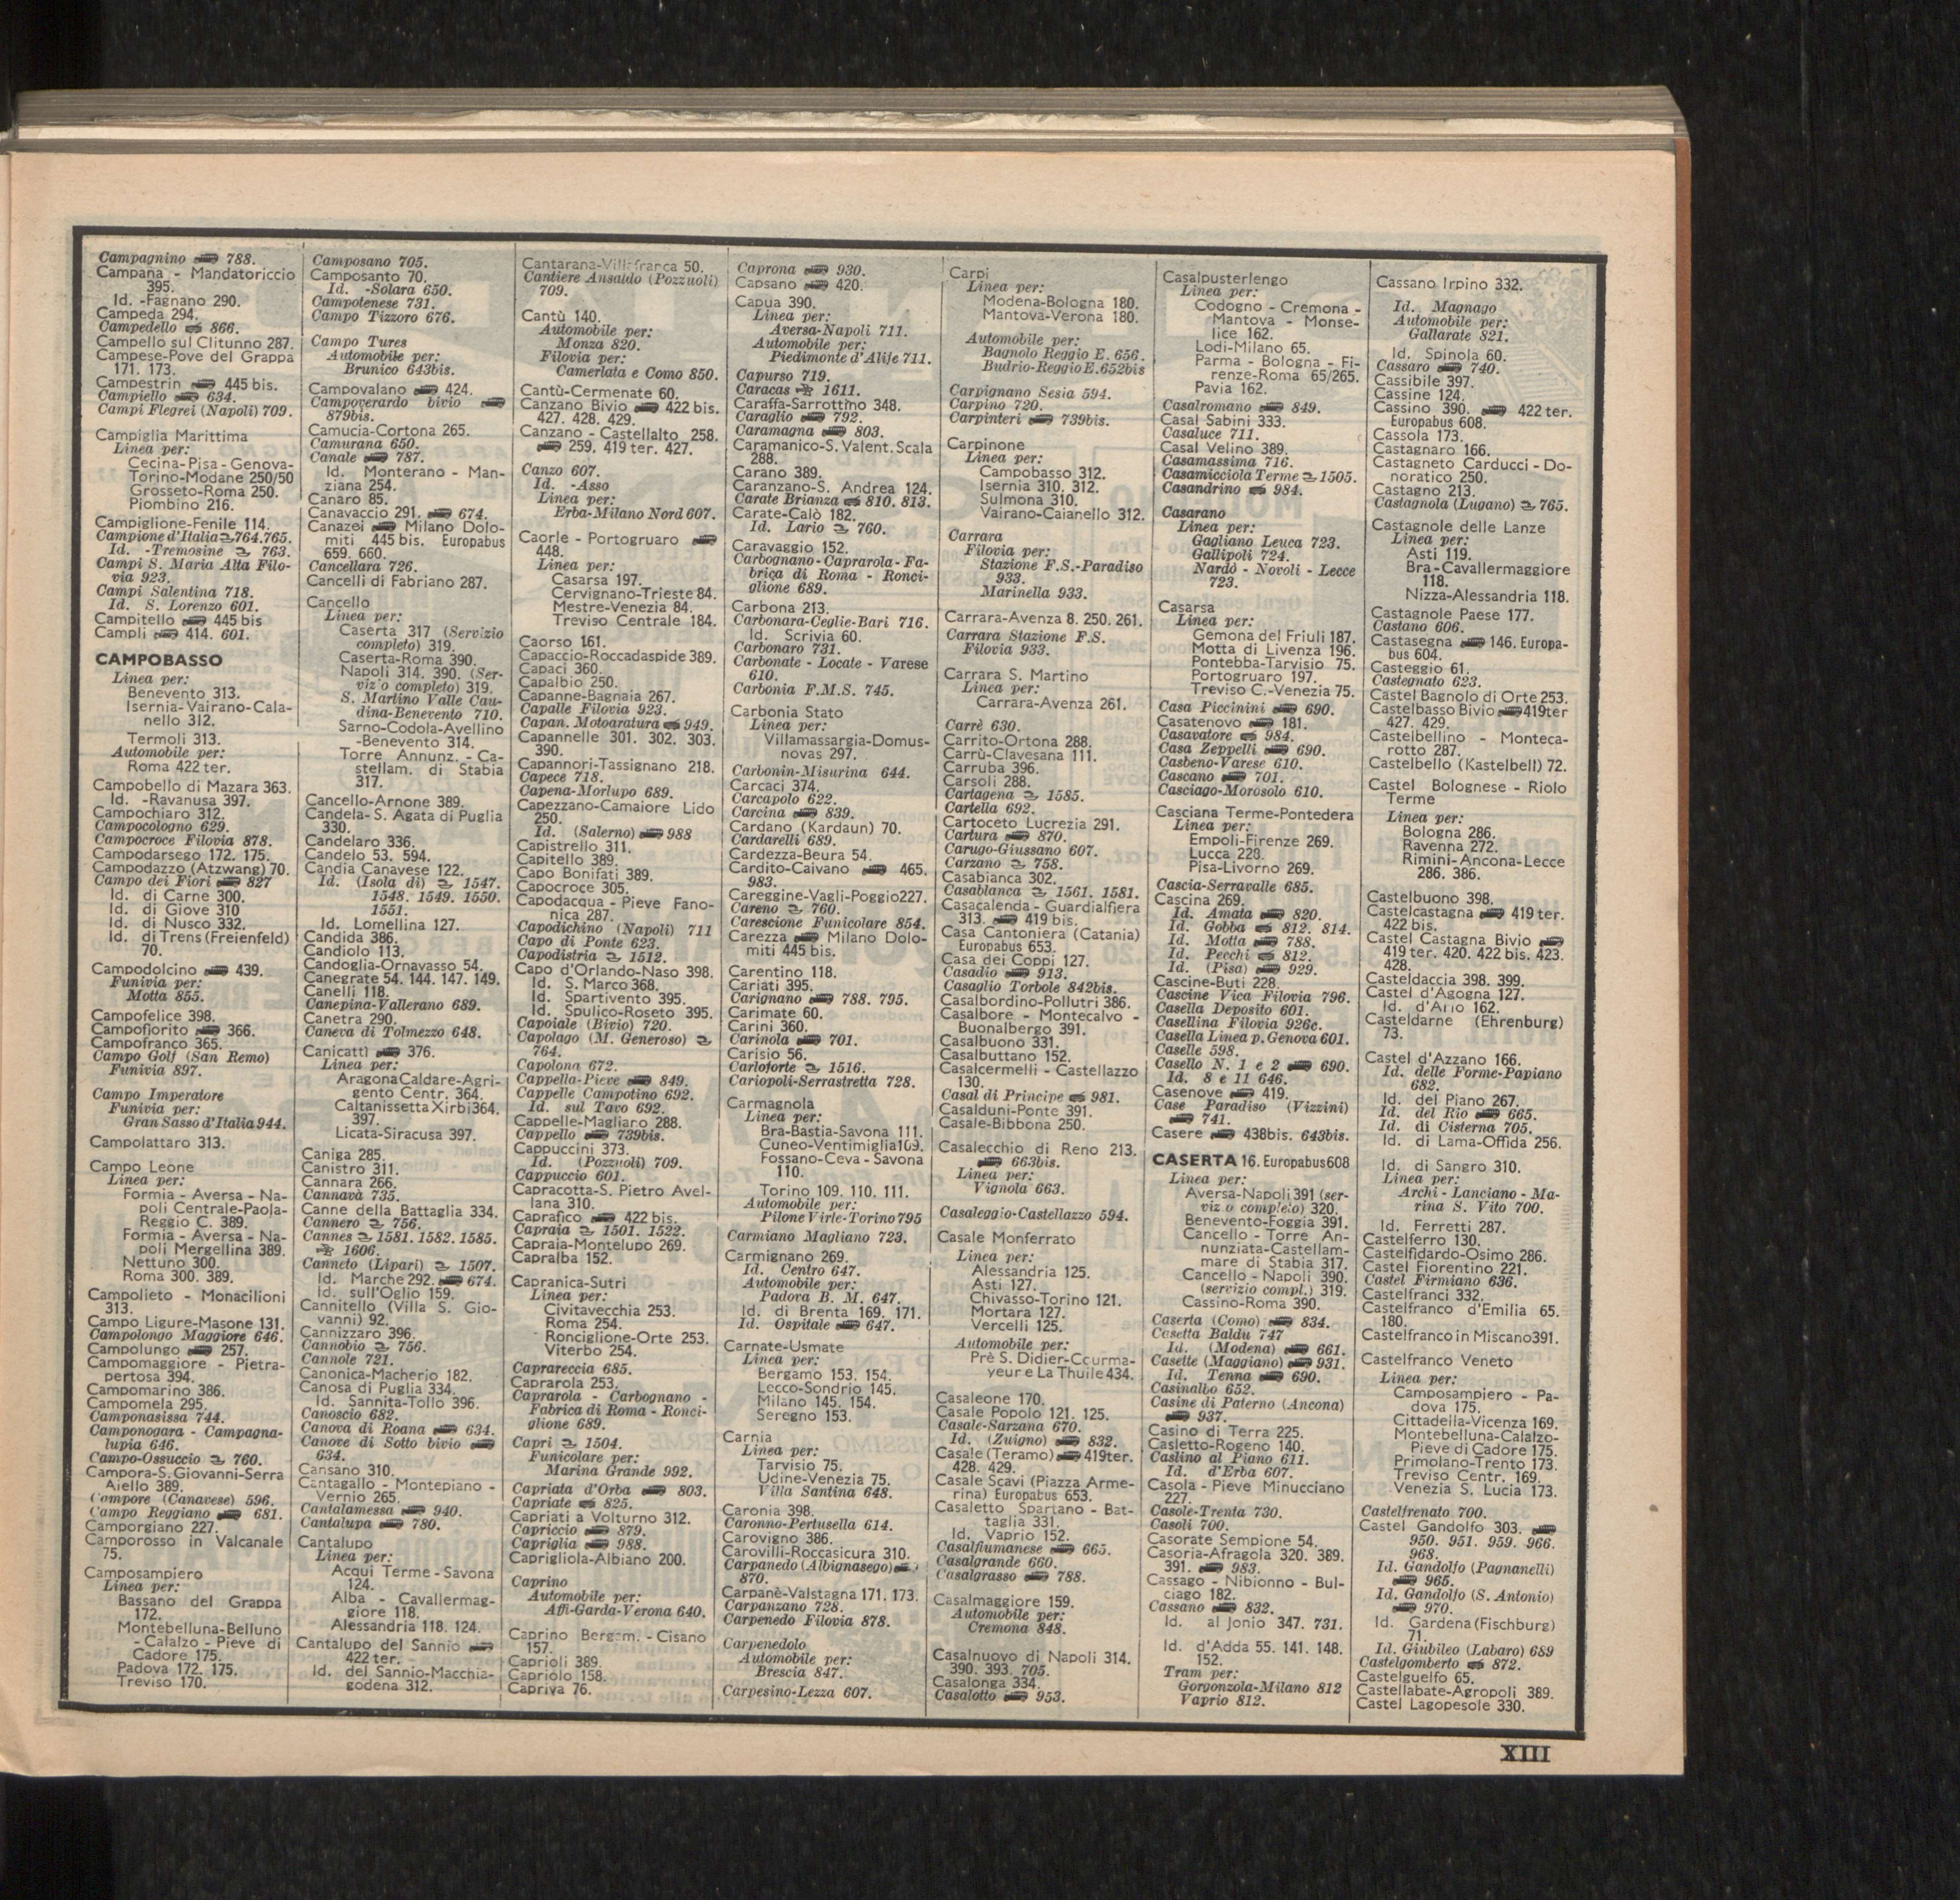 Campagnino 788.
Campana - Mandatoriccio
395.
Id. -Fagnano 290.
Campeda 294.
Campedello 866.
Campello sul Clitunno 287.
Campese-Pove del Grappa
171. 173.
Campestrin 445 bis.
Campiello 634.
Campi Flegrei (Napoli) 709.
Campiglia Marittima
Linea per:
Cecina-Pisa-Genova-
Torino-Modane 250/50
Grosseto-Roma 250.
Piombino 216.
Campiglione-Fenile 114.
Campione d'Italia 764.765.
Id. -Tremosine 763.
Campi S. Maria Alta Filo-
via 923.
Campi Salentina 718.
Id. S. Lorenzo 601.
Campitello 445 bis
Campli 414. 601.
CAMPOBASSO
Linea per:
Benevento 313.
Isernia-Vairano-Caia-
nello 312.
Termoli 313.
Automobile per:
Roma 422 ter.
Campobello di Mazara 363.
Id. -Ravanusa 397.
Campochiaro 312.
Campocologno 629.
Campocroce Filovia 878.
Campodarsego 172. 175.
Campodazzo (Atzwang) 70.
Campo dei Fiori 827
Id. di Carne 300.
Id. di Giove 310
Id. di Nusco 332.
Id. di Trens (Freienfeld)
70.
Campodolcino 439.
Funivia per:
Motta 855.
Campofelice 398.
Campofiorito 366.
Campofranco 365.
Campo Golf (San Remo)
Funivia 897.
Campo Imperatore
Funivia per:
Gran Sasso d'Italia 944.
Campolattaro 313.
Campo Leone
Linea per:
Formia - Aversa - Na-
poli Centrale-Paola-
Reggio C. 389.
Formia - Aversa - Na-
poli Mergellina 389.
Nettuno 300.
Roma 300. 389.
Campolieto - Monacilioni
313.
Campo Ligure-Masone 131.
Campolongo Maggiore 646.
Campolungo 257.
Campomaggiore - Pietra-
pertosa 394.
Campomarino 386.
Campomela 295.
Camponasissa 744.
Camponogara - Campagna-
lupia 646.
Campo-Ossuccio 760.
Campora-S. Giovanni-Serra
Aiello 389.
Campore (Canavese) 596.
Campo Reggiano 681.
Camporgiano 227.
Camporosso in Valcanale
75.
Camposampiero
Linea per:
Bassano del Grappa
172.
Montebelluna-Belluno
- Calalzo - Pieve di
Cadore 175.
Padova 172. 175.
Treviso 170.
Camposano 705.
Camposanto 70.
Id. -Solara 650.
Campotenese 731.
Campo Tizzoro 676.
Campo Tures
Automobile per:
Brunico 643bis.
Campovalano 424.
Campoverardo bivio
879bis.
Camucia-Cortona 265.
Camurana 650.
Canale 787.
Id. Monterano - Man-
ziana 254.
Canaro 85.
Canavaccio 291. 674.
Canazei Milano Dolo-
miti 445 bis. Europabus
659. 660.
Cancellara 726.
Cancelli di Fabriano 287.
Cancello
Linea per:
Caserta 317 (Servizio
completo) 319.
Caserta-Roma 390.
Napoli 314. 390. (Ser-
viz'o completo) 319.
S. Martino Valle Cau-
dina-Benevento 710.
Sarno-Codola-Avellino
-Benevento 314.
Torre Annunz. - Ca-
stellam. di Stabia
317.
Cancello-Arnone 389.
Candela-S. Agata di Puglia
330.
Candelaro 336.
Candelo 53. 594.
Candia Canavese 122.
Id. (Isola di) 1547.
1548. 1549. 1550.
1551.
Id. Lomellina 127.
Candida 386.
Candiolo 113.
Candoglia-Ornavasso 54.
Canegrate 54. 144. 147. 149.
Canelli 118.
Canepina-Vallerano 689.
Canetra 290.
Caneva di Tolmezzo 648.
Canicattì 376.
Linea per:
Aragona Caldare-Agri-
gento Centr. 364.
Caltanissetta Xirbi 364.
397.
Licata-Siracusa 397.
Caniga 285.
Canistro 311.
Cannara 266.
Cannavà 735.
Canne della Battaglia 334.
Cannero 756.
Cannes 1581. 1582. 1585.
1606.
Canneto (Lipari) 1507.
Id. Marche 292. 674.
Id. sull'Oglio 159.
Cannitello (Villa S. Gio-
vanni) 92.
Cannizzaro 396.
Cannobio 756.
Cannole 721.
Canonica-Macherio 182.
Canosa di Puglia 334.
Id. Sannita-Tollo 396.
Canoscio 682.
Canova di Roana 634.
Canove di Sotto bivio
634.
Cansano 310.
Cantagallo - Montepiano -
Vernio 265.
Cantalamessa 940.
Cantalupa 780.
Cantalupo
Linea per:
Acqui Terme-Savona
124.
Alba - Cavallermag-
giore 118.
Alessandria 118. 124.
Cantalupo del Sannio
422 ter.
Id. del Sannio-Macchia-
godena 312.
Cantarana-Villafranca 50.
Cantiere Ansaldo (Pozzuoli)
709.
Cantù 140.
Automobile per:
Monza 820.
Filovia per:
Camerlata e Como 850.
Cantù-Cermenate 60.
Canzano Bivio 422 bis.
427. 428. 429.
Canzano - Castellalto 258.
259. 419 ter. 427.
Canzo 607.
Id. -Asso
Linea per:
Erba-Milano Nord 607.
Caorle - Portogruaro
448.
Linea per:
Casarsa 197.
Cervignano-Trieste 84.
Mestre-Venezia 84.
Treviso Centrale 184.
Caorso 161.
Capaccio-Roccadaspide 389.
Capaci 360.
Capalbio 250.
Capanne-Bagnaia 267.
Capalle Filovia 923.
Capan. Motoaratura 949.
Capannelle 301. 302. 303.
390.
Capannori-Tassignano 218.
Capece 718.
Capena-Morlupo 689.
Capezzano-Camaiore Lido
250.
Id. (Salerno) 988
Capistrello 311.
Capitello 389.
Capo Bonifati 389.
Capocroce 305.
Capodacqua - Pieve Fano-
nica 287.
Capodichino (Napoli) 711
Capo di Ponte 623.
Capodistria 1512.
Capo d'Orlando-Naso 398.
Id. S. Marco 368.
Id. Spartivento 395.
Id. Spulico-Roseto 395.
Capoiale (Bivio) 720.
Capolago (M. Generoso)
764.
Capolona 672.
Cappella-Pieve 849.
Cappelle Campotino 692.
Id. sul Tavo 692.
Cappelle-Magliaro 288.
Cappello 739bis.
Cappuccini 373.
Id. (Pozzuoli) 709.
Cappuccio 601.
Capracotta-S. Pietro Avel-
lana 310.
Caprafico 422 bis.
Capraia 1501. 1522.
Capraia-Montelupo 269.
Capralba 152.
Capranica-Sutri
Linea per:
Civitavecchia 253.
Roma 254.
Ronciglione-Orte 253.
Viterbo 254.
Caprareccia 685.
Caprarola 253.
Caprarola - Carbognano -
Fabrica di Roma - Ronci-
glione 689.
Capri 1504.
Funicolare per:
Marina Grande 992.
Capriata d'Orba 803.
Capriate 825.
Capriati a Volturno 312.
Capriccio 879.
Capriglia 988.
Caprigliola-Albiano 200.
Caprino
Automobile per:
Affi-Garda-Verona 640.
Caprino Bergam. - Cisano
157.
Caprioli 389.
Capriolo 158.
Capriva 76.
Caprona 930.
Capsano 420.
Capua 390.
Linea per:
Aversa-Napoli 711.
Automobile per:
Piedimonte d'Alife 711.
Capurso 719.
Caracas 1611.
Caraffa-Sarrottino 348.
Caraglio 792.
Caramagna 803.
Caramanico-S. Valent. Scala
288.
Carano 389.
Caranzano-S. Andrea 124.
Carate Brianza 810. 813.
Carate-Calò 182.
Id. Lario 760.
Caravaggio 152.
Carbognano-Caprarola-Fa-
brica di Roma - Ronci-
glione 689.
Carbona 213.
Carbonara-Ceglie-Bari 716.
Id. Scrivia 60.
Carbonaro 731.
Carbonate - Locate - Varese
610.
Carbonia F.M.S. 745.
Carbonia Stato
Linea per:
Villamassargia-Domus-
novas 297.
Carbonin-Misurina 644.
Carcaci 374.
Carcapolo 622.
Carcina 839.
Cardano (Kardaun) 70.
Cardarelli 689.
Cardezza-Beura 54.
Cardito-Caivano 465.
983.
Careggine-Vagli-Poggio 227.
Careno 760.
Carescione Funicolare 854.
Carezza Milano Dolo-
miti 445 bis.
Carentino 118.
Cariati 395.
Carignano 788. 795.
Carimate 60.
Carini 360.
Carinola 701.
Carisio 56.
Carloforte 1516.
Cariopoli-Serrastretta 728.
Carmagnola
Linea per:
Bra-Bastia-Savona 111.
Cuneo-Ventimiglia 109.
Fossano-Ceva - Savona
110.
Torino 109. 110. 111.
Automobile per:
Pilone Virle-Torino 795
Carmiano Magliano 723.
Carmignano 269.
Id. Centro 647.
Automobile per:
Padova B. M. 647.
Id. di Brenta 169. 171.
Id. Ospitale 647.
Carnate-Usmate
Linea per:
Bergamo 153. 154.
Lecco-Sondrio 145.
Milano 145. 154.
Seregno 153.
Carnia
Linea per:
Tarvisio 75.
Udine-Venezia 75.
Villa Santina 648.
Caronia 398.
Caronno-Pertusella 614.
Carovigno 386.
Carovilli-Roccasicura 310.
Carpanedo (Albignasego)
870.
Carpanè-Valstagna 171. 173.
Carpanzano 728.
Carpenedo Filovia 878.
Carpenedolo
Automobile per:
Brescia 847.
Carpesino-Lezza 607.
Carpi
Linea per:
Modena-Bologna 180.
Mantova-Verona 180.
Automobile per:
Bagnolo Reggio E. 656.
Budrio-Reggio E. 652bis
Carpignano Sesia 594.
Carpino 720.
Carpinteri 739bis.
Carpinone
Linea per:
Campobasso 312.
Isernia 310. 312.
Sulmona 310.
Vairano-Caianello 312.
Carrara
Filovia per:
Stazione F.S.-Paradiso
933.
Marinella 933.
Carrara-Avenza 8. 250. 261.
Carrara Stazione F.S.
Filovia 933.
Carrara S. Martino
Linea per:
Carrara-Avenza 261.
Carrè 630.
Carrito-Ortona 288.
Carrù-Clavesana 111.
Carruba 396.
Carsoli 288.
Cartagena 1585.
Cartella 692.
Cartoceto Lucrezia 291.
Cartura 870.
Carugo-Giussano 607.
Carzano 758.
Casabianca 302.
Casablanca 1561. 1581.
Casacalenda - Guardialfiera
313. 419 bis.
Casa Cantoniera (Catania)
Europabus 653.
Casa dei Coppi 127.
Casadio 913.
Casaglio Torbole 842bis.
Casalbordino-Pollutri 386.
Casalbore - Montecalvo -
Buonalbergo 391.
Casalbuono 331.
Casalbuttano 152.
Casalcermelli - Castellazzo
130.
Casal di Principe 981.
Casalduni-Ponte 391.
Casale-Bibbona 250.
Casalecchio di Reno 213.
663bis.
Linea per:
Vignola 663.
Casaleggio-Castellazzo 594.
Casale Monferrato
Linea per:
Alessandria 125.
Asti 127.
Chivasso-Torino 121.
Mortara 127.
Vercelli 125.
Automobile per:
Prè S. Didier-Courma-
yeur e La Thuile 434.
Casaleone 170.
Casale Popolo 121. 125.
Casale-Sarzana 670.
Id. (Zuigno) 832.
Casale (Teramo) 419ter.
428. 429.
Casale Scavi (Piazza Arme-
rina) Europabus 653.
Casaletto Spartano - Bat-
taglia 331.
Id. Vaprio 152.
Casalfiumanese 665.
Casalgrande 660.
Casalgrasso 788.
Casalmaggiore 159.
Automobile per:
Cremona 848.
Casalnuovo di Napoli 314.
390. 393. 705.
Casalonga 334.
Casalotto 953.
Casalpusterlengo
Linea per:
Codogno - Cremona -
Mantova - Monse-
lice 162.
Lodi-Milano 65.
Parma - Bologna - Fi-
renze-Roma 65/265.
Pavia 162.
Casalromano 849.
Casal Sabini 333.
Casaluce 711.
Casal Velino 389.
Casamassima 716.
Casamicciola Terme 1505.
Casandrino 984.
Casarano
Linea per:
Gagliano Leuca 723.
Gallipoli 724.
Nardò - Novoli - Lecce
723.
Casarsa
Linea per:
Gemona del Friuli 187.
Motta di Livenza 196.
Pontebba-Tarvisio 75.
Portogruaro 197.
Treviso C.-Venezia 75.
Casa Piccinini 690.
Casatenovo 181.
Casavatore 984.
Casa Zeppelli 690.
Casbeno-Varese 610.
Cascano 701.
Casciago-Morosolo 610.
Casciana Terme-Pontedera
Linea per:
Empoli-Firenze 269.
Lucca 228.
Pisa-Livorno 269.
Cascia-Serravalle 685.
Cascina 269.
Id. Amata 820.
Id. Gobba 812. 814.
Id. Motta 788.
Id. Pecchi 812.
Id. (Pisa) 929.
Cascine-Buti 228.
Cascine Vica Filovia 796.
Casella Deposito 601.
Casellina Filovia 926c.
Casella Linea p. Genova 601.
Caselle 598.
Casello N. 1 e 2 690.
Id. 8 e 11 646.
Casenove 419.
Case Paradiso (Vizzini)
741.
Casere 438bis. 643bis.
CASERTA 16. Europabus 608
Linea per:
Aversa-Napoli 391 (ser-
viz o completo) 320.
Benevento-Foggia 391.
Cancello - Torre An-
nunziata-Castellam-
mare di Stabia 317.
Cancello - Napoli 390.
(servizio compl.) 319.
Cassino-Roma 390.
Caserta (Como) 834.
Casetta Baldu 747
Id. (Modena) 661.
Casette (Maggiano) 931.
Id. Tenna 690.
Casinalbo 652.
Casine di Paterno (Ancona)
937.
Casino di Terra 225.
Casletto-Rogeno 140.
Caslino al Piano 611.
Id. d'Erba 607.
Casola - Pieve Minucciano
227.
Casole-Trenta 730.
Casoli 700.
Casorate Sempione 54.
Casoria-Afragola 320. 389.
391. 983.
Cassago - Nibionno - Bul-
ciago 182.
Cassano 832.
Id. al Jonio 347. 731.
Id. d'Adda 55. 141. 148.
152.
Tram per:
Gorgonzola-Milano 812
Vaprio 812.
Cassano Irpino 332.
Id. Magnago
Automobile per:
Gallarate 821.
Id. Spinola 60.
Cassaro 740.
Cassibile 397.
Cassine 124.
Cassino 390. 422 ter.
Europabus 608.
Cassola 173.
Castagnaro 166.
Castagneto Carducci - Do-
noratico 250.
Castagno 213.
Castagnola (Lugano) 765.
Castagnole delle Lanze
Linea per:
Asti 119.
Bra-Cavallermaggiore
118.
Nizza-Alessandria 118.
Castagnole Paese 177.
Castano 606.
Castasegna 146. Europa-
bus 604.
Casteggio 61.
Castegnato 623.
Castel Bagnolo di Orte 253.
Castelbasso Bivio 419ter
427. 429.
Castelbellino - Monteca-
rotto 287.
Castelbello (Kastelbell) 72.
Castel Bolognese - Riolo
Terme
Linea per:
Bologna 286.
Ravenna 272.
Rimini-Ancona-Lecce
286. 386.
Castelbuono 398.
Castelcastagna 419 ter.
422 bis.
Castel Castagna Bivio
419 ter. 420. 422 bis. 423.
428.
Casteldaccia 398. 399.
Castel d'Agogna 127.
Id. d'Ario 162.
Casteldarne (Ehrenburg)
73.
Castel d'Azzano 166.
Id. delle Forme-Papiano
682.
Id. del Piano 267.
Id. del Rio 665.
Id. di Cisterna 705.
Id. di Lama-Offida 256.
Id. di Sangro 310.
Linea per:
Archi - Lanciano - Ma-
rina S. Vito 700.
Id. Ferretti 287.
Castelferro 130.
Castelfidardo-Osimo 286.
Castel Fiorentino 221.
Castel Firmiano 636.
Castelfranci 332.
Castelfranco d'Emilia 65.
180.
Castelfranco in Miscano 391.
Castelfranco Veneto
Linea per:
Camposampiero - Pa-
dova 175.
Cittadella-Vicenza 169.
Montebelluna-Calalzo-
Pieve di Cadore 175.
Primolano-Trento 173.
Treviso Centr. 169.
Venezia S. Lucia 173.
Castelfrenato 700.
Castel Gandolfo 303.
950. 951. 959. 966.
968.
Id. Gandolfo (Pagnanelli)
965.
Id. Gandolfo (S. Antonio)
970.
Id. Gardena (Fischburg)
71.
Id. Giubileo (Labaro) 689
Castelgomberto 872.
Castelguelfo 65.
Castellabate-Agropoli 389.
Castel Lagopesole 330.
XIII